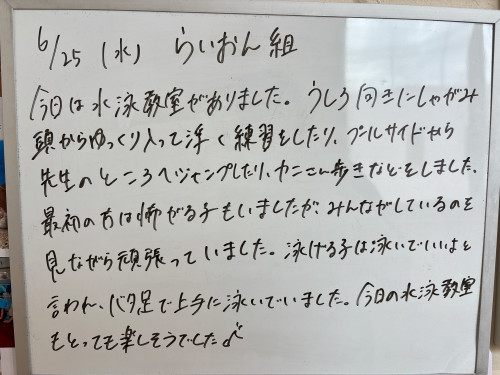 6/25 (水) らいおん組
今日は水泳教室がありました。うしろ向きにしゃがみ
頭からゆっくり入って浮く練習をしたり、プールサイドから
先生のところへジャンプしたり、カニさん歩きなどをしました。
最初の方は怖がる子もいましたが、みんながしているのを
見ながら頑張っていました。泳げる子は泳いでいいよと
言われ、バタ足で上手に泳いでいました。今日の水泳教室
もとっても楽しそうでした♪